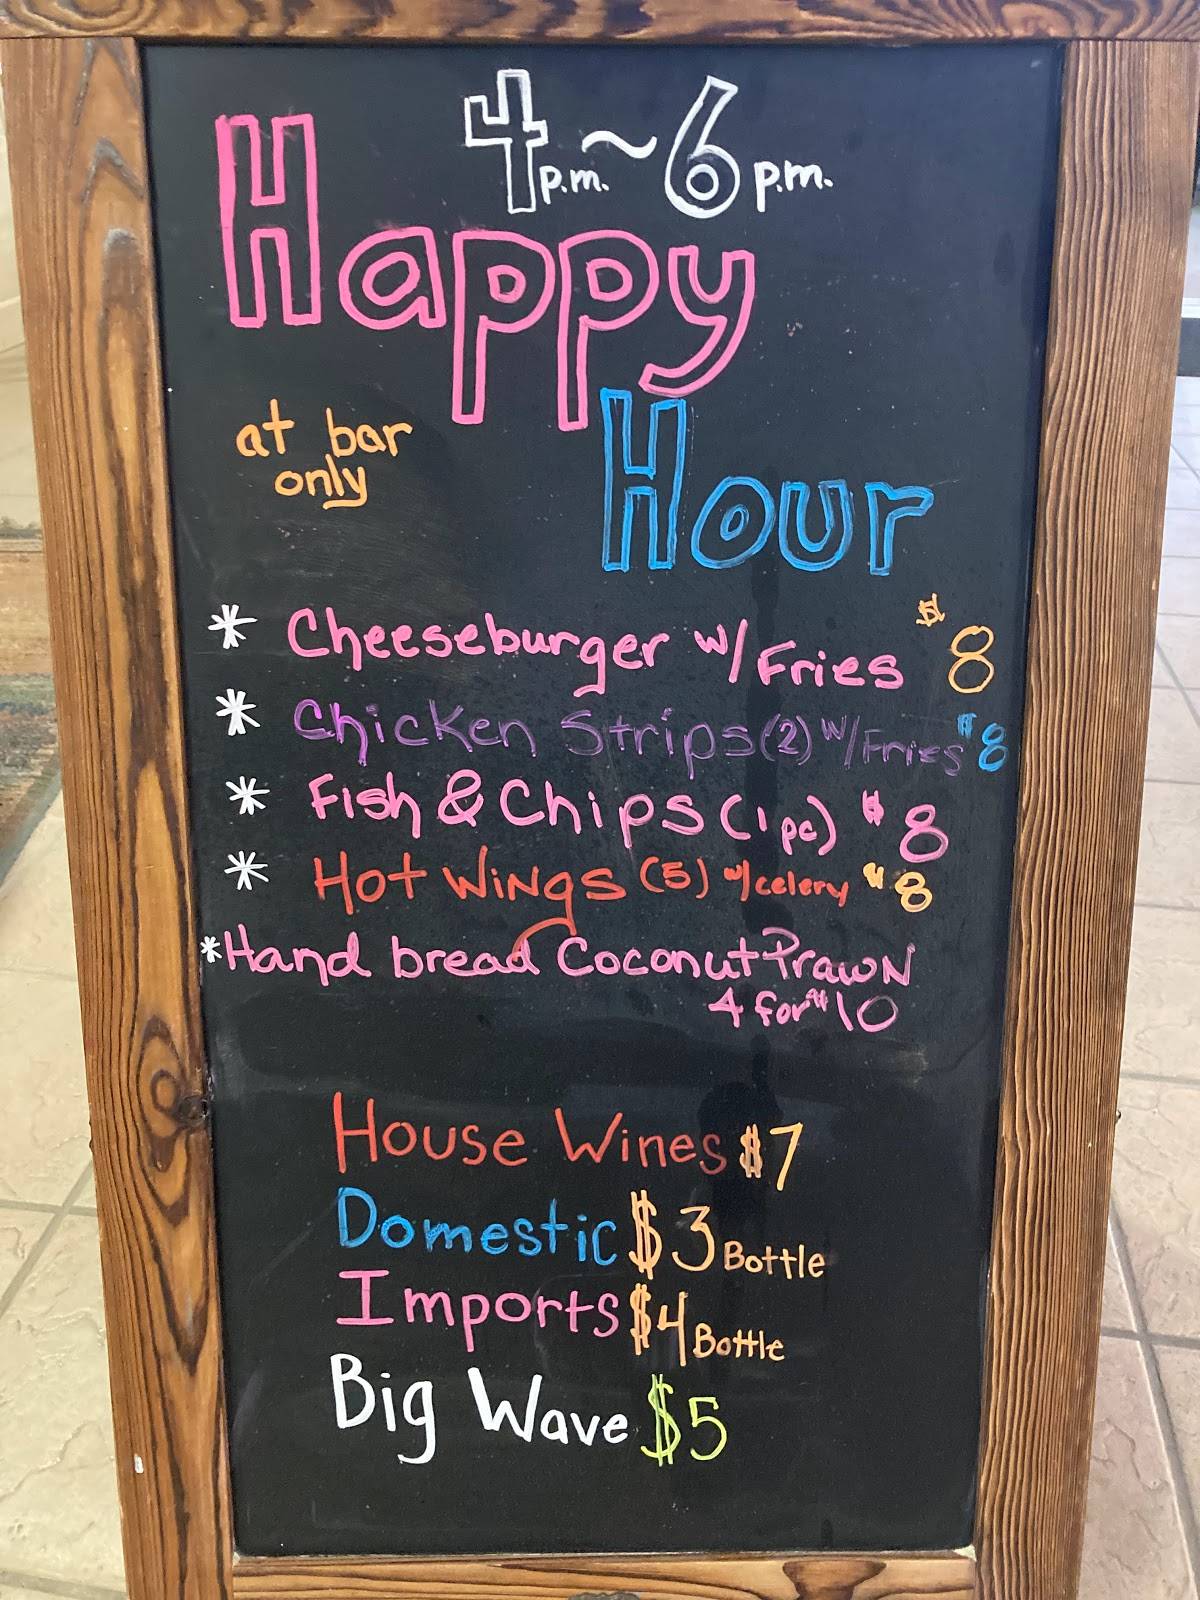 4 p.m. ~ 6 p.m.
Happy
Hour
at bar
only
* Cheeseburger w/Fries $8
* Chicken Strips (2) w/Fries $8
* Fish & Chips (1 pc) $8
* Hot Wings (5) w/celery $8
*Hand bread Coconut Prawn
4 for $10
House Wines $7
Domestic $3 Bottle
Imports $4 Bottle
Big Wave $5